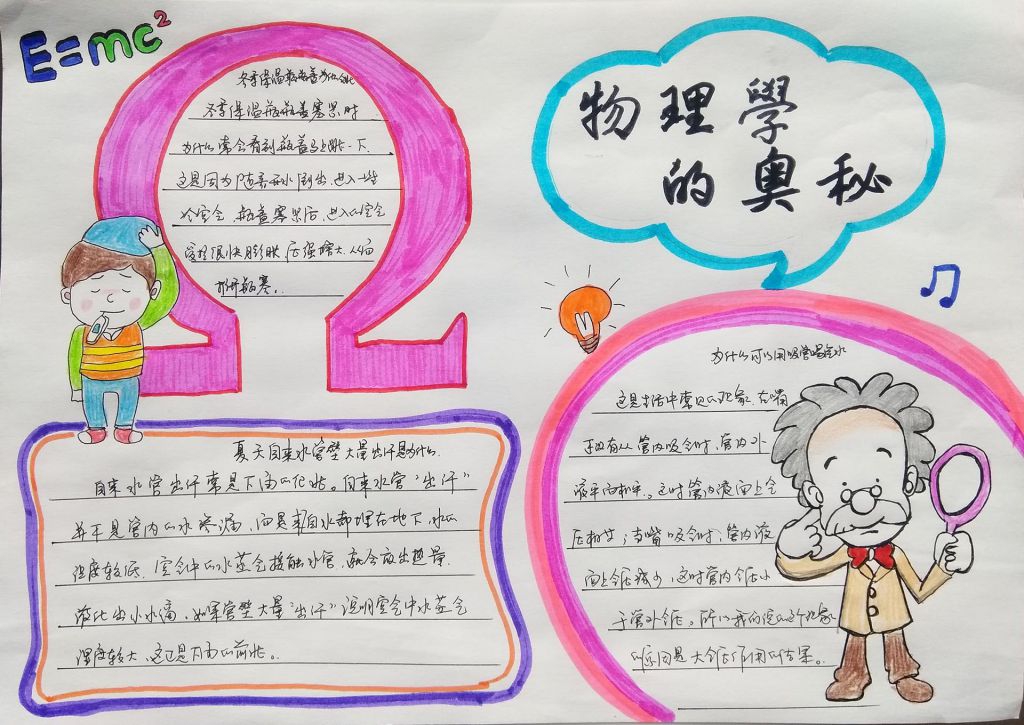 E=mc²
冬季保温瓶瓶盖为什么跳
冬季保温瓶瓶盖塞紧时
为什么常会看到瓶盖马上跳一下
这是因为随着开水倒出,进入一些
冷空气,瓶盖塞紧后,进入的空气
受热很快膨胀压强增大,从而
推开瓶塞。
物理學
的奥秘
为什么可以用吸管喝汽水
这是生活中常见的现象,在嘴
没有从管内吸气时,管内外
液平面相平。这时管内液面上气
压相等;当嘴吸气时,管内液
面上气压减少,这时管内气压小
于管外气压。所以我们说的这个现象
的原因是大气压作用的结果。
夏天自来水管壁大量出汗是为什么
自来水管出汗常是下雨的征兆。自来水管“出汗”
并不是管内的水渗漏,而是自来水都埋在地下,水的
温度较低,空气中的水蒸气接触水管,就会放出热量
液化出小水滴,如果管壁大量“出汗”说明空气中水蒸气
湿度较大,这正是下雨的前兆。